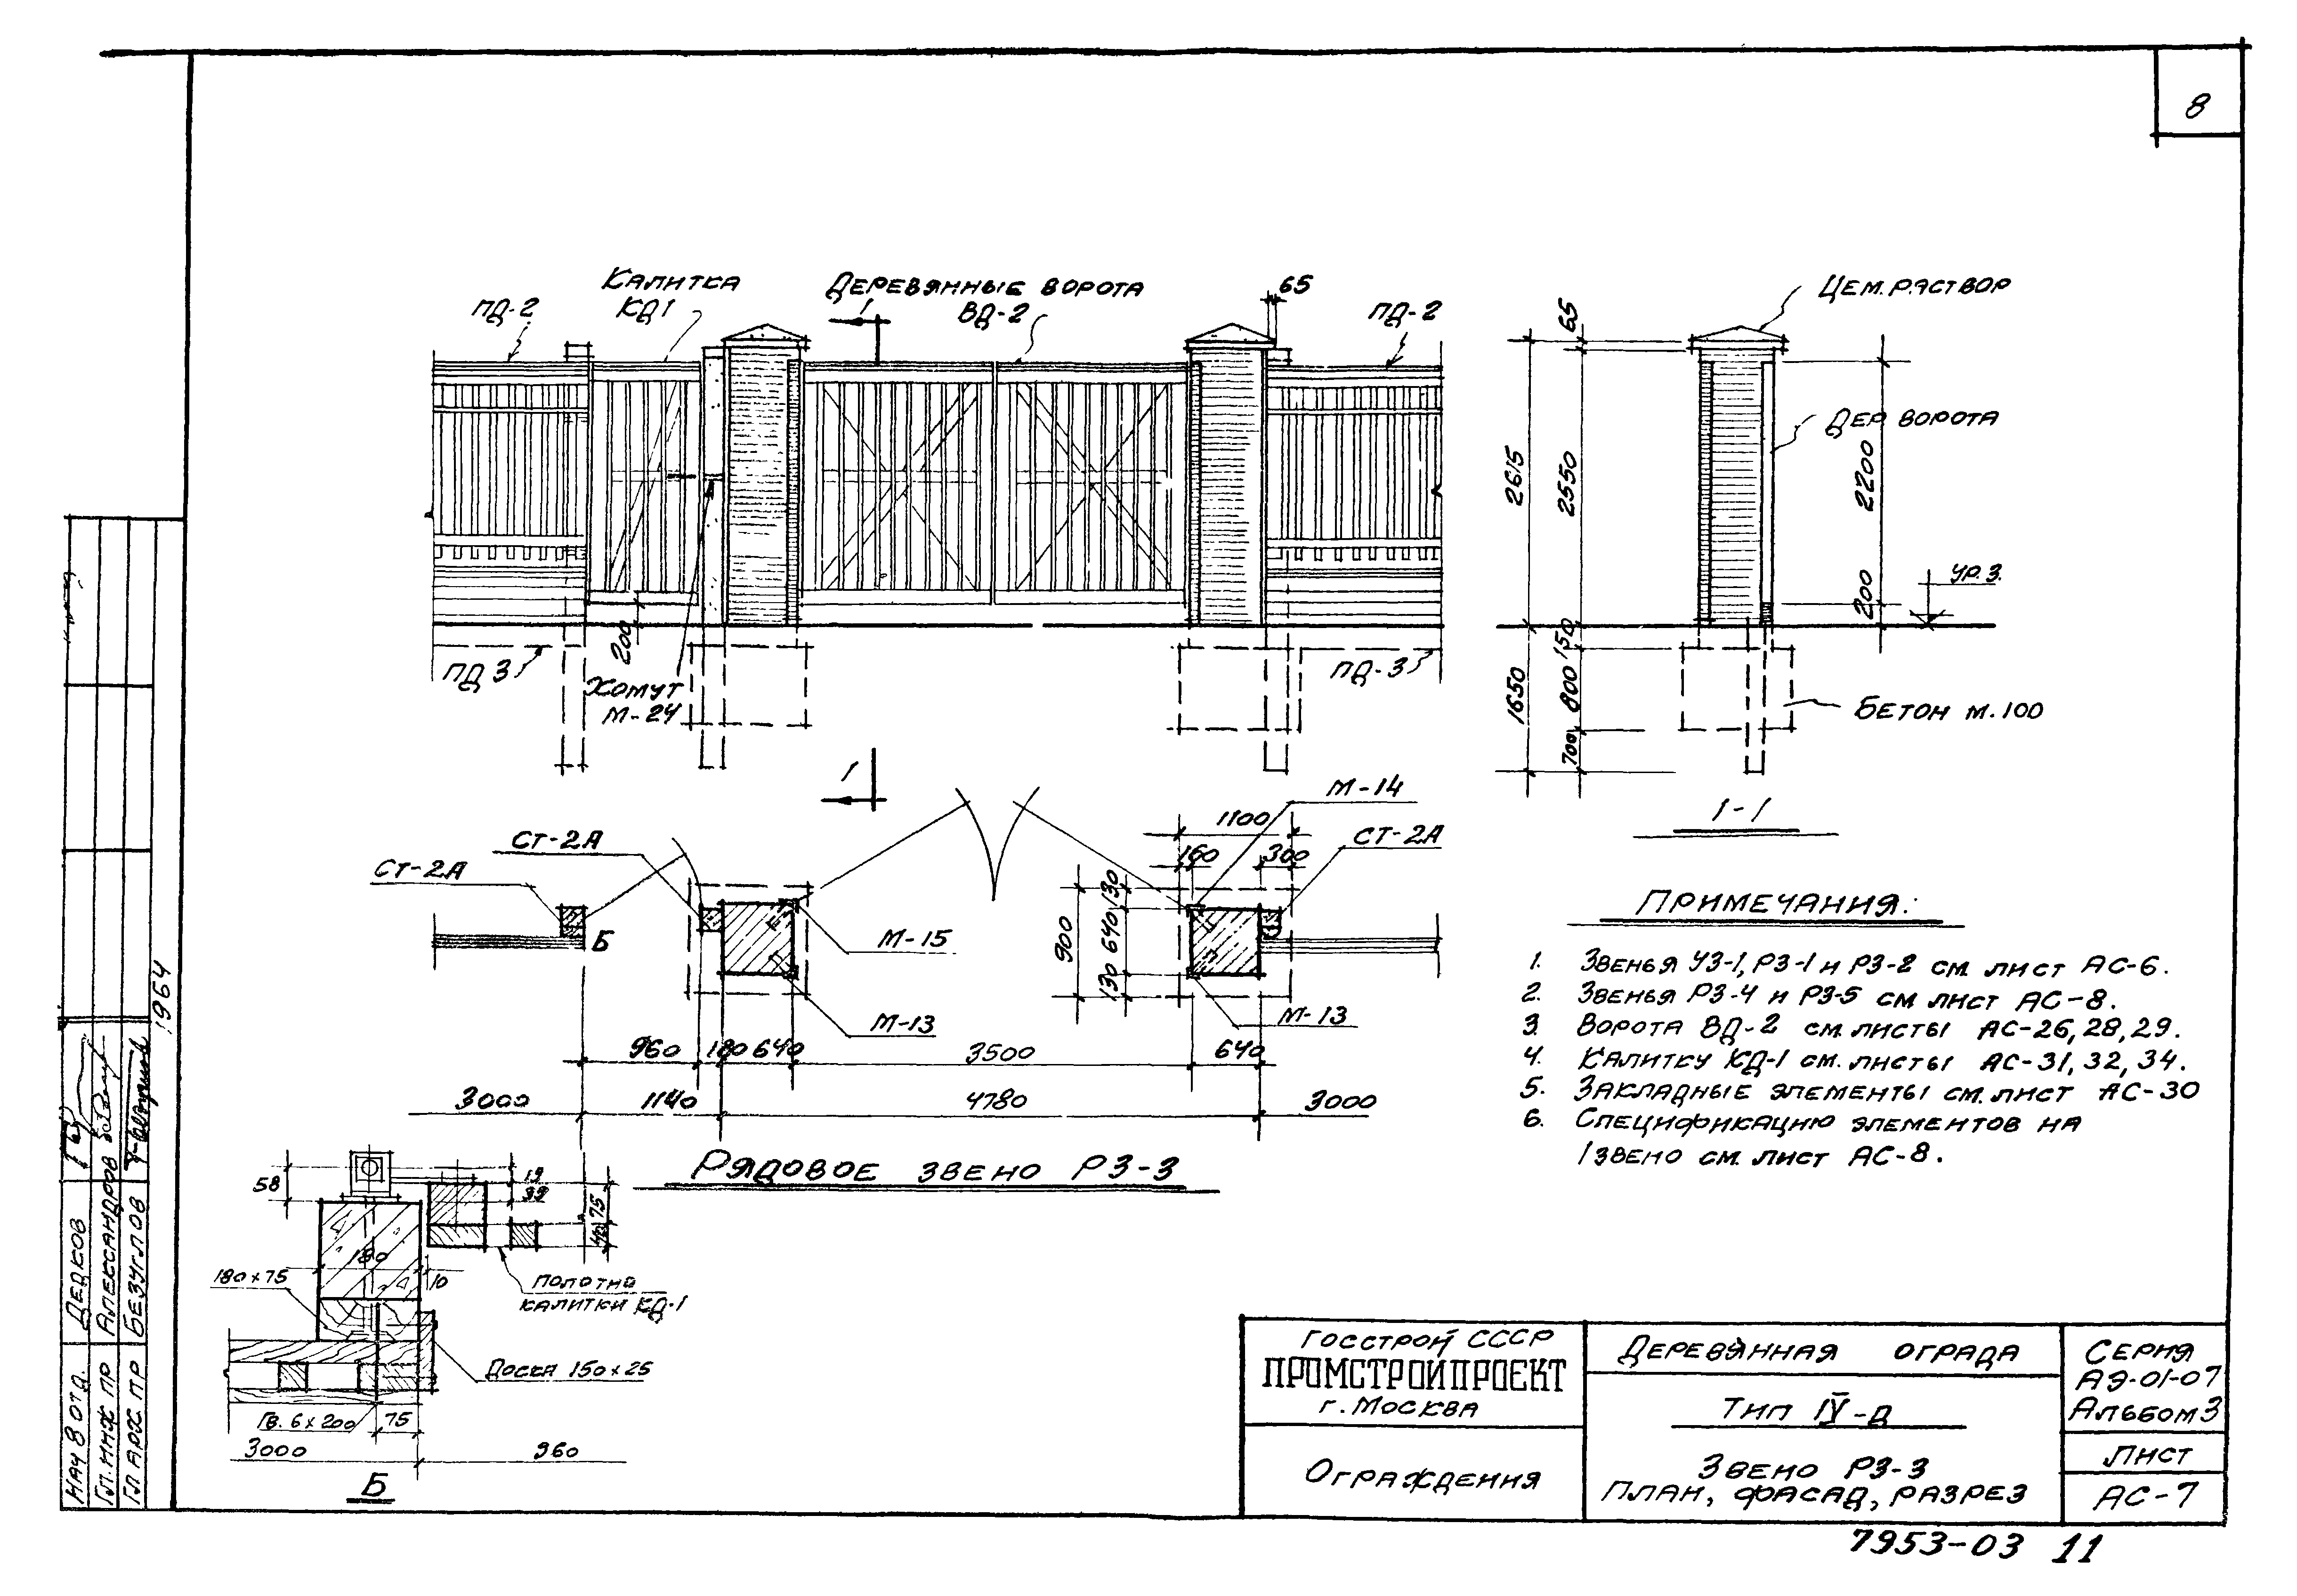 8
Калитка
КД1
Деревянные ворота
ВД-2
1
65
ПД-2
ПД-2
Цем. раствор
65
2615
2550
2200
Дер. ворота
200
ур. з.
150
800
700
1650
Бетон м. 100
1-1
200
ПД 3
ПД-3
Хомут
М-24
1
М-14
1100
160
300
СТ-2А
СТ-2А
СТ-2А
Б
М-15
М-13
М-13
900
130
640
130
960
180
640
3500
640
3000
1140
4780
3000
Рядовое звено РЗ-3
Примечания:
1. Звенья УЗ-1, РЗ-1 и РЗ-2 см. лист АС-6.
2. Звенья РЗ-4 и РЗ-5 см. лист АС-8.
3. Ворота ВД-2 см. листы АС-26, 28, 29.
4. Калитку КД-1 см. листы АС-31, 32, 34.
5. Закладные элементы см. лист АС-30
6. Спецификацию элементов на
1 звено см. лист АС-8.
58
19
39
75
180
10
180×75
полотно
калитки КД-1
Доска 150×25
Гв. 6×200
75
3000
960
Б
1964
Нач 8 отд. Дедков
Гл. инж пр Александров
Гл арх. пр Безуглов
Госстрой СССР
ПРОМСТРОЙПРОЕКТ
г. Москва
Ограждения
Деревянная ограда
Тип IV-Д
Звено РЗ-3
План, фасад, разрез
Серия
АЭ-01-07
Альбом 3
Лист
АС-7
7953-03 11